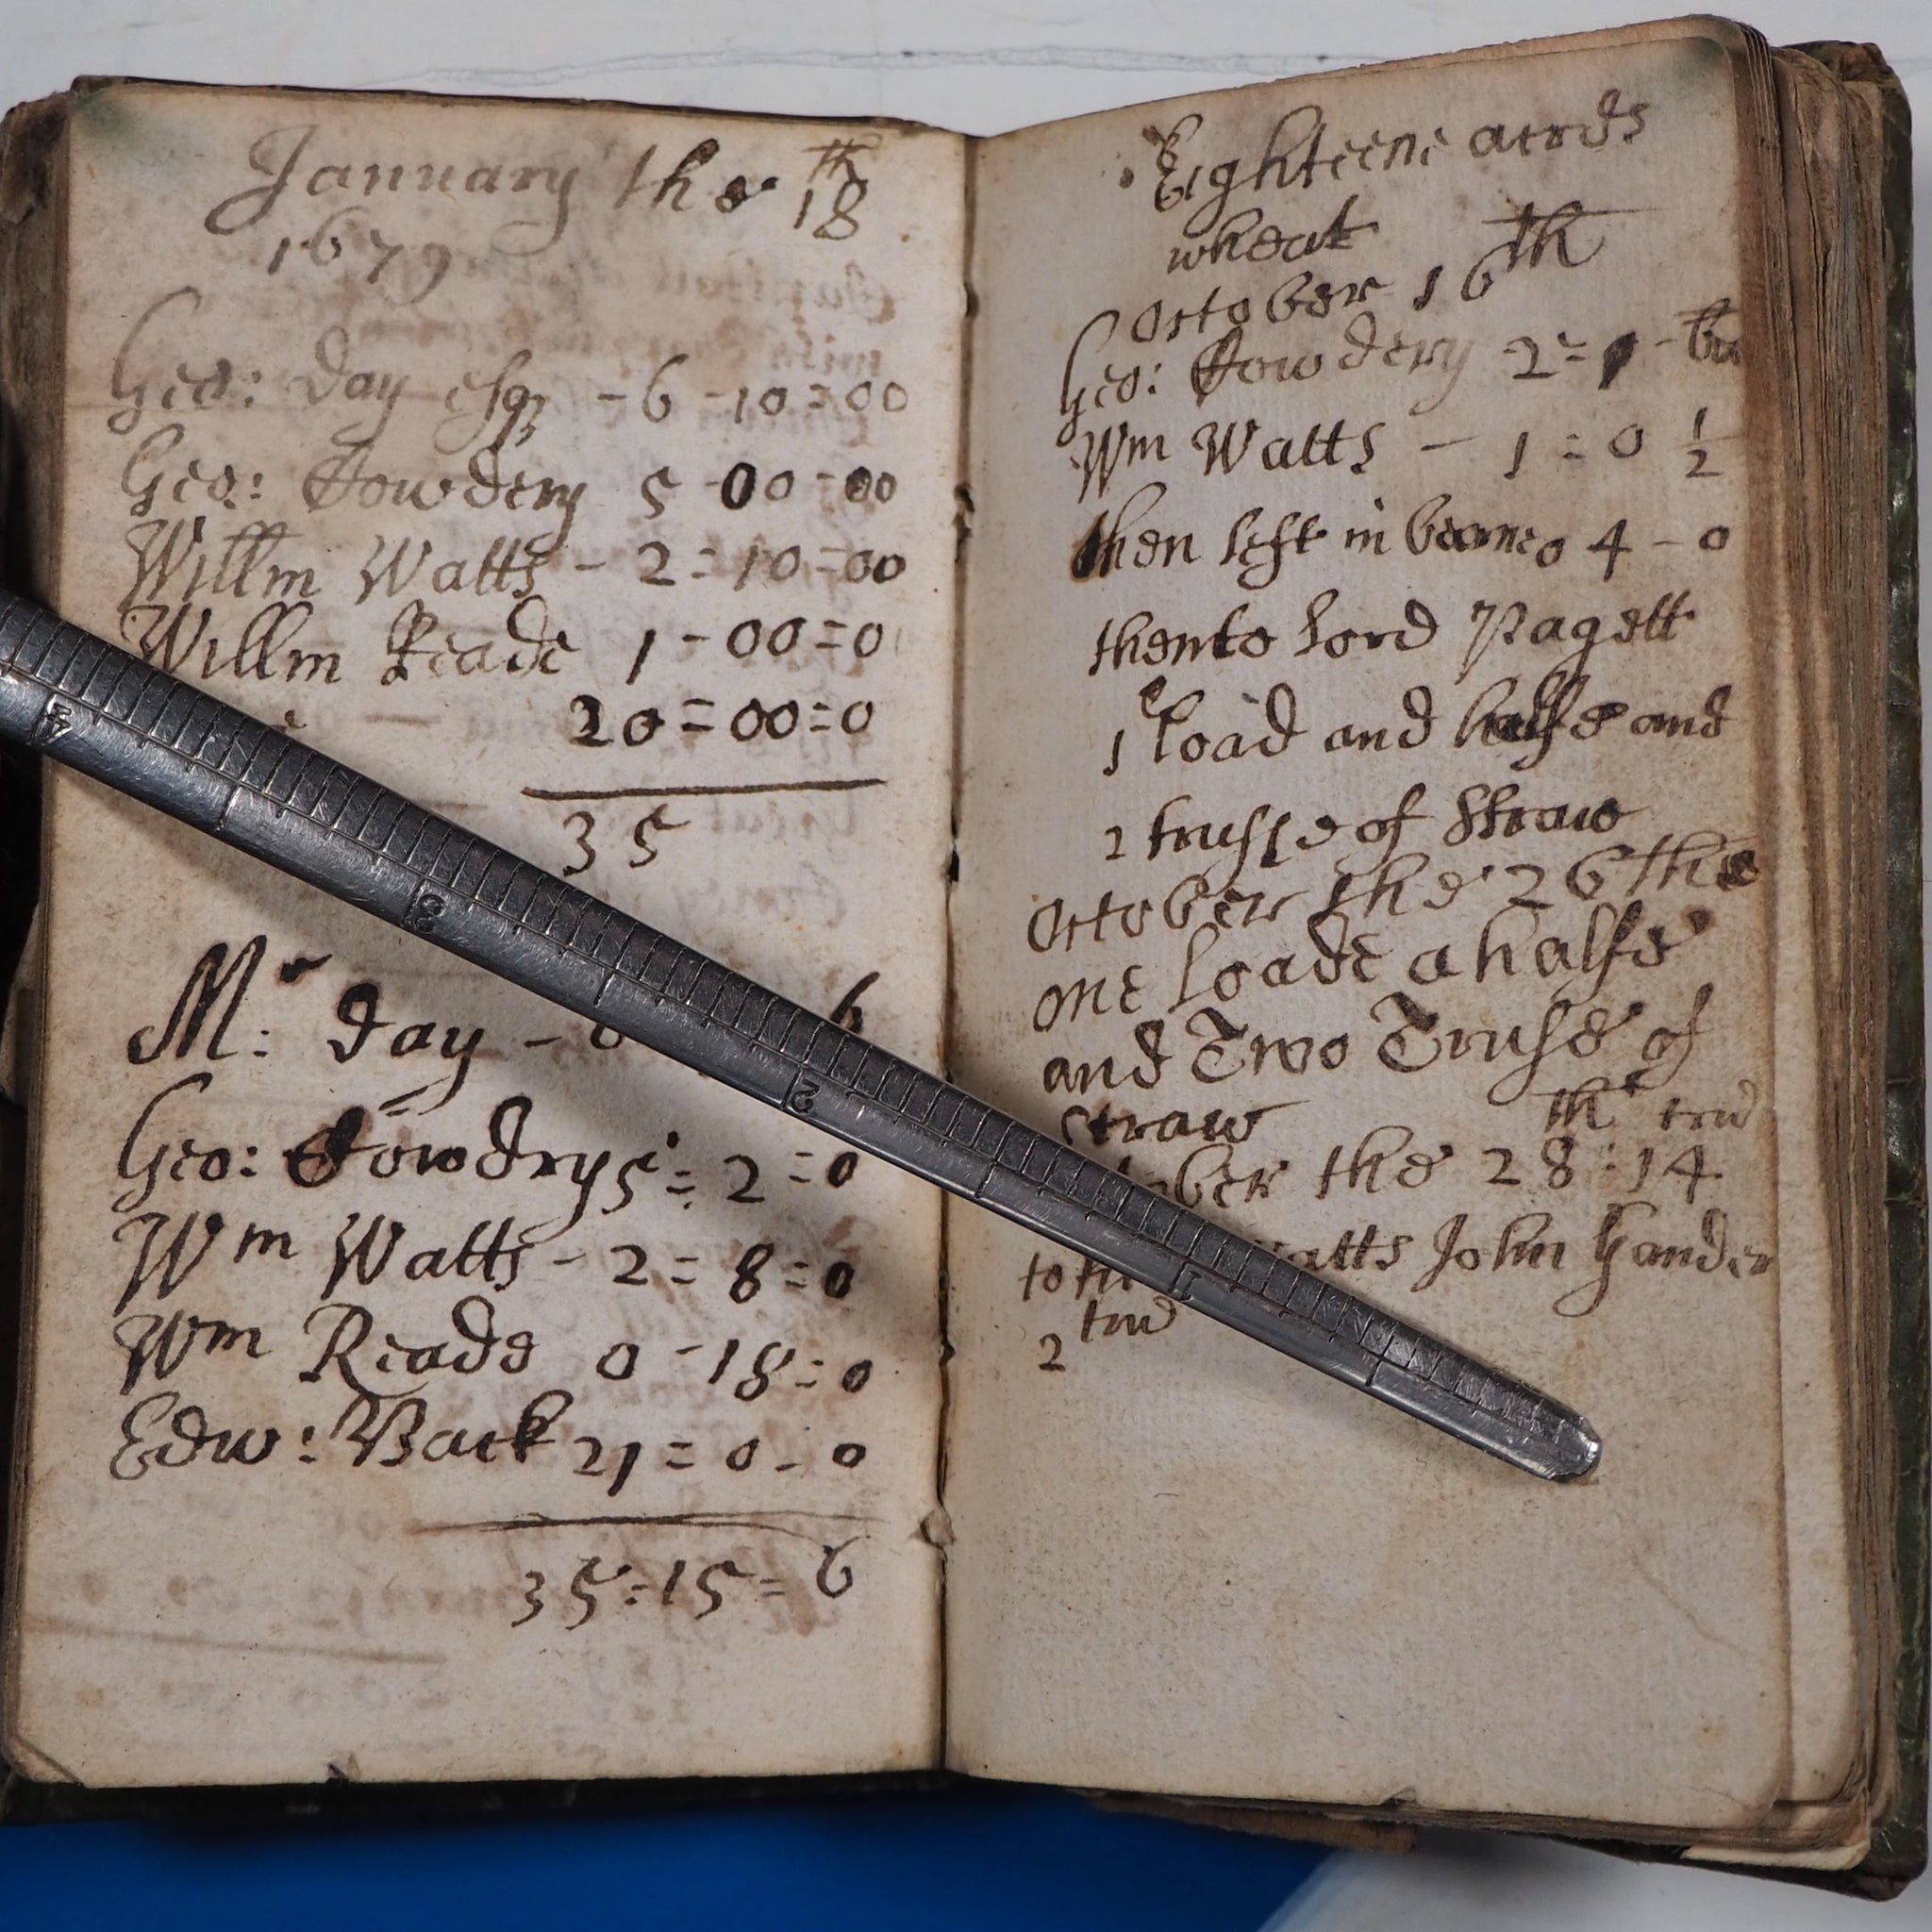 January the 18th
1679
Geo: Day esqr - 6 - 10 = 00
Geo: Cowdery 5 00 - 00
Willm Watts - 2 = 10 = 00
Willm Reade 1 - 00 = 0
20 = 00 = 0
35
Mr: Day - 6
Geo: Cowdrys 5 = 2 = 0
Wm Watts - 2 = 8 = 0
Wm Reade 0 - 18 = 0
Edw: Back 21 = 0 - 0
35 = 15 = 6
Eighteene acrds
wheat
October 16th
Geo: Cowdery 2 = 1 -
Wm Watts - 1 = 0 1/2
then left in 4 - 0
then to Lord Pagett
1 load and halfe and
2 trusse of Straw
October the 26 the
one loade a halfe
and Two Truse of
straw
the 28 : 14
John Gander
2
4
3
2
1